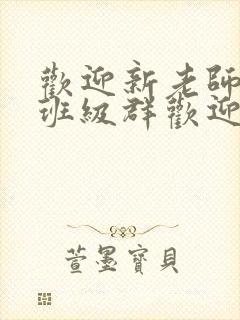 歡迎新老師
班級群歡迎
萱墨寶貝